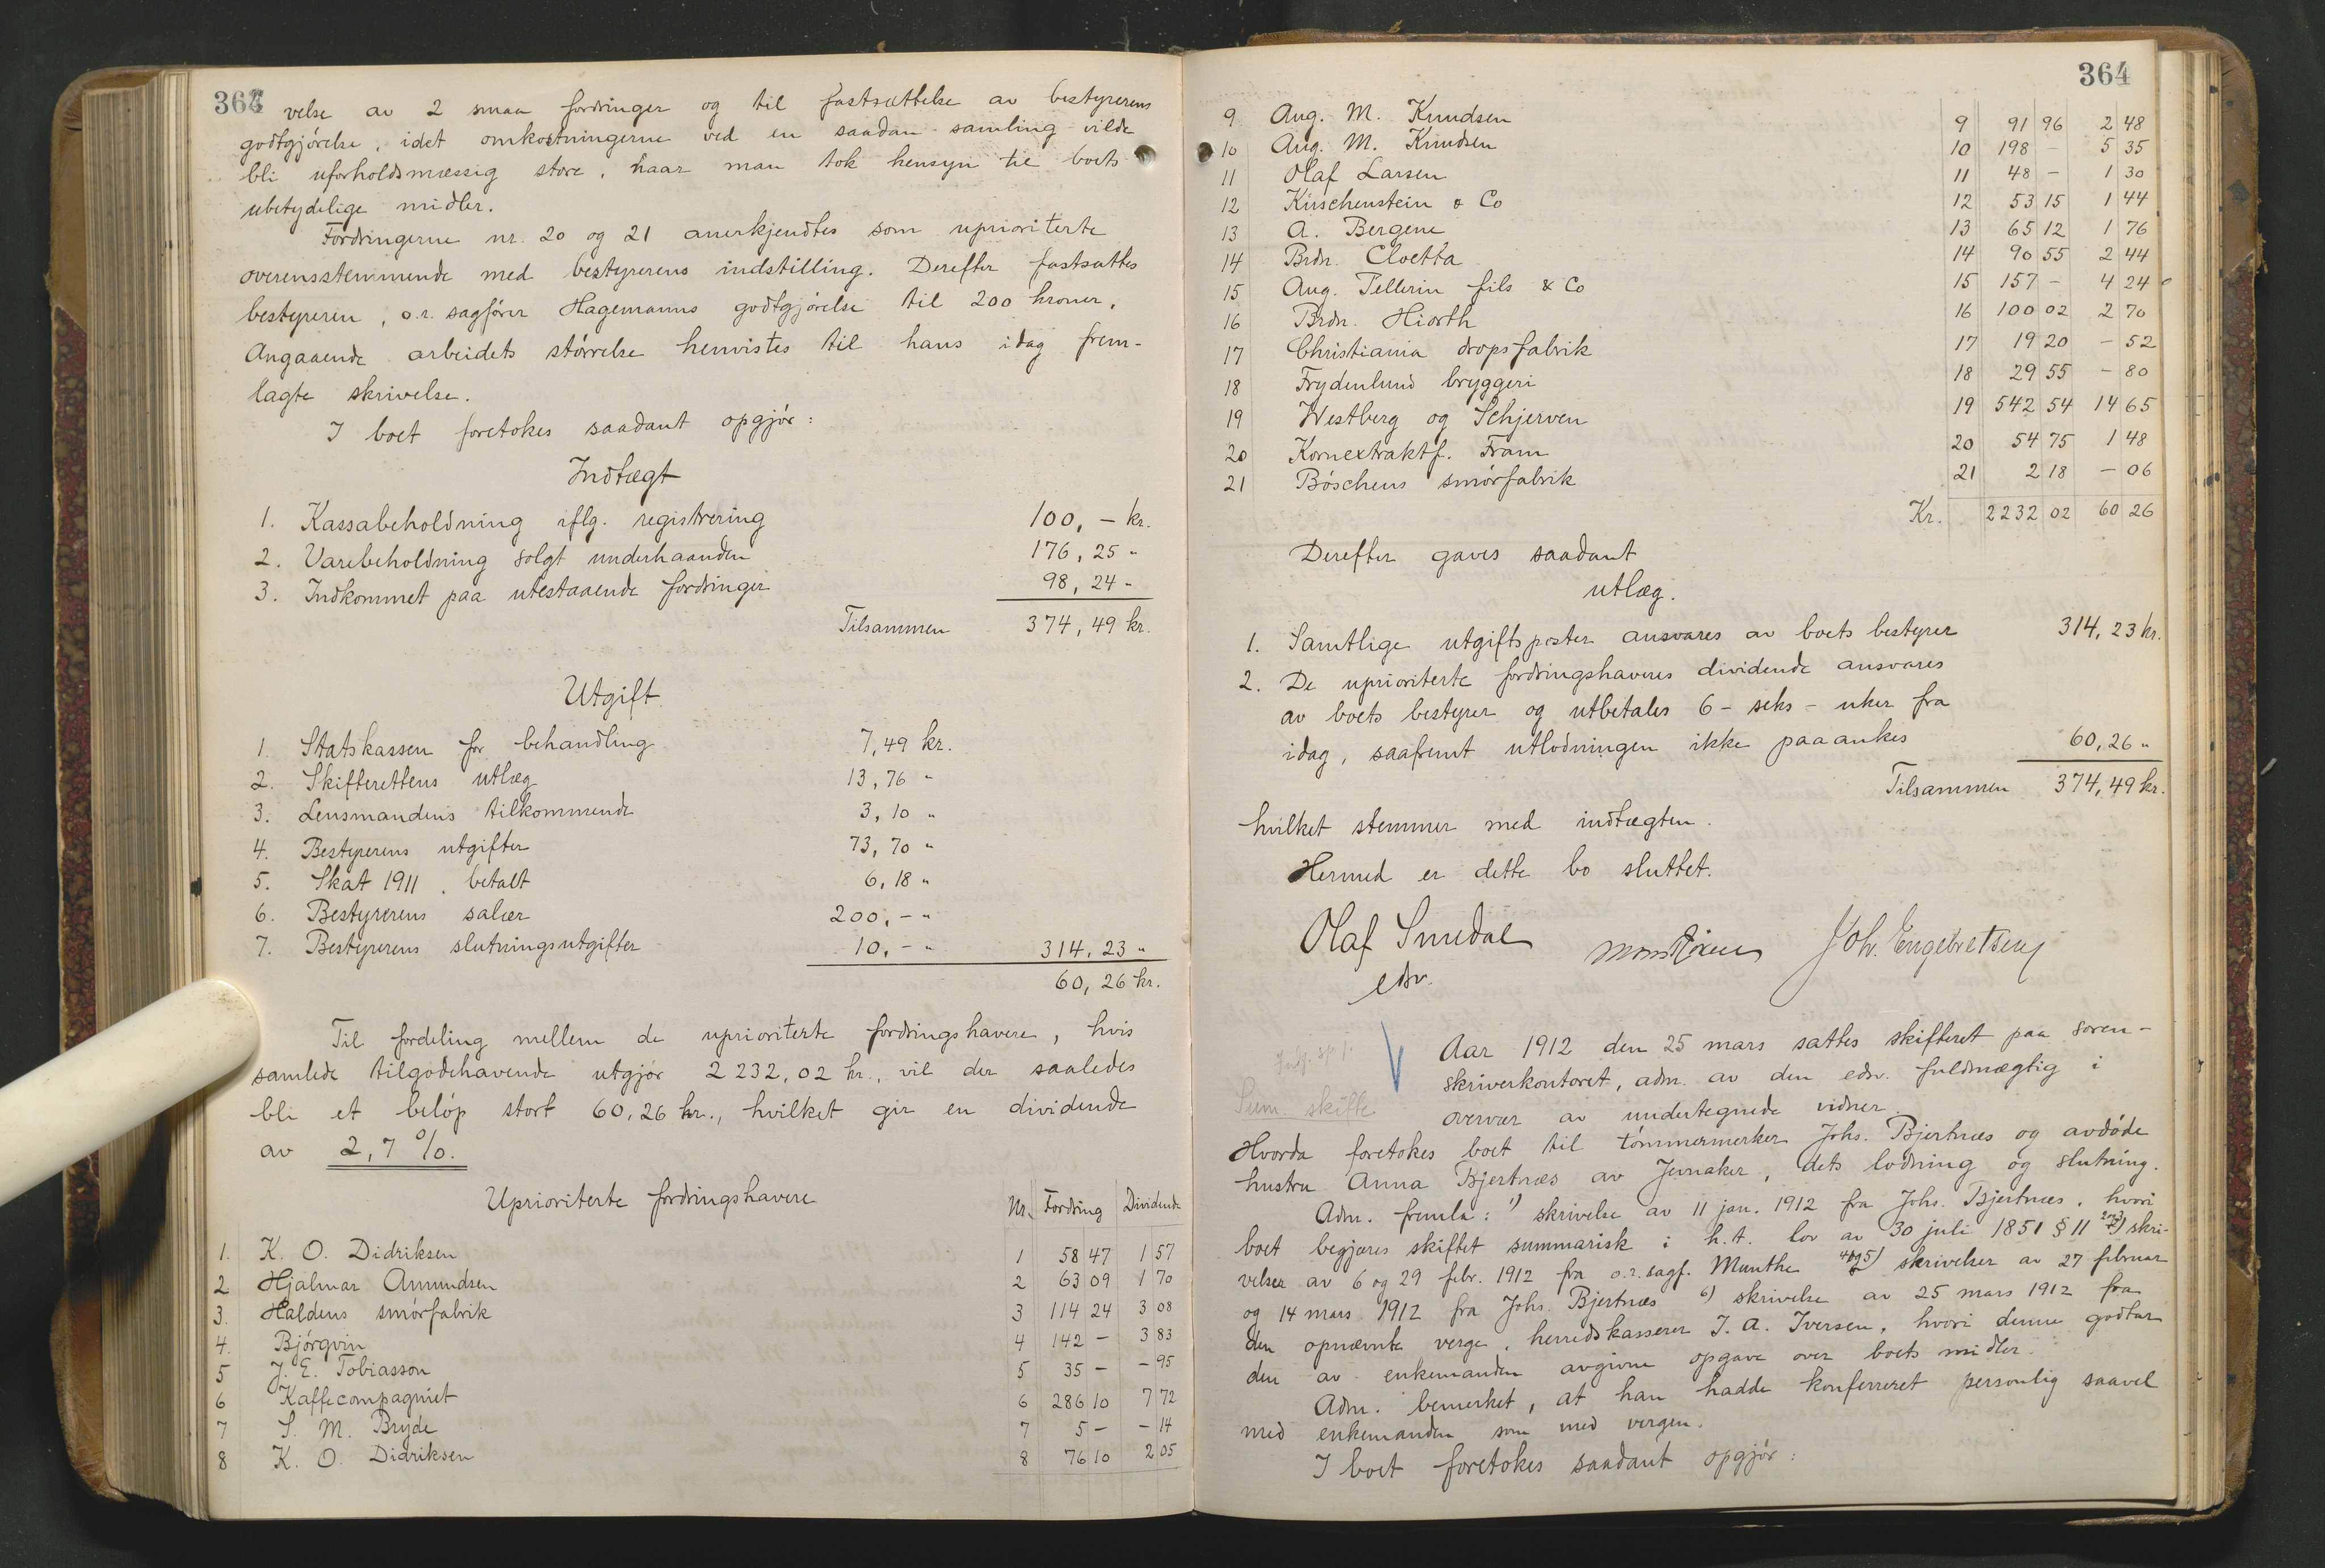 363
velse av 2 smaa fordringer og til fastsættelse av bestyrerens
godtgjörelse, idet omkostningerne ved en saadan samling vilde
bli uforholdsmæssig store, naar man tok hensyn til boets
ubetydelige midler.
Fordringerne nr. 20 og 21 anerkjendtes som uprioriterte
overensstemmende med bestyrerens indstilling. Derefter fastsattes
bestyreren, o.r. sagförer Hagemanns godtgjörelse til 200 kroner.
Angaaende arbeidets störrelse henvistes til hans idag frem-
lagte skrivelse.
I boet foretokes saadant opgjör:
Indtægt
1. Kassabeholdning iflg. registrering 100,- kr.
2. Varebeholdning solgt underhaanden 176,25 "
3. Indkommet paa utestaaende fordringer 98,24 "
Tilsammen 374,49 kr.
Utgift
1. Statskassen for behandling 7,49 kr.
2. Skifterettens utlæg 13,76 "
3. Lensmandens tilkommende 3,10 "
4. Bestyrerens utgifter 73,70 "
5. Skat 1911, betalt 6,18 "
6. Bestyrerens salær 200,- "
7. Bestyrerens slutningsutgifter 10,- " 314,23 "
60,26 kr.
Til fordeling mellem de uprioriterte fordringshavere, hvis
samlede tilgodehavende utgjör 2232,02 kr., vil der saaledes
bli et belöp stort 60,26 kr., hvilket gir en dividende
av 2,7 %.
Uprioriterte fordringshavere Nr. Fordring Dividende
1. K. O. Didriksen 1 58 47 1 57
2 Hjalmar Amundsen 2 63 09 1 70
3. Haldens smörfabrik 3 114 24 3 08
4. Bjórgvin 4 142 - 3 83
5 J. E. Tobiasson 5 35 - - 95
6 Kaffecompagniet 6 286 10 7 72
7 S. M. Bryde 7 5 - - 14
8 K. O. Didriksen 8 76 10 2 05
364
9 Aug. M. Knudsen 9 91 96 2 48
10 Aug. M. Knudsen 10 198 - 5 35
11 Olaf Larsen 11 48 - 1 30
12 Kirschenstein & Co 12 53 15 1 44
13 A. Bergene 13 65 12 1 76
14 Brdr. Cloetta 14 90 55 2 44
15 Aug. Pellerin fils & Co 15 157 - 4 24
16 Brdr. Hiorth 16 100 02 2 70
17 Christiania dropsfabrik 17 19 20 - 52
18 Frydenlund bryggeri 18 29 55 - 80
19 Westberg og Schjerven 19 542 54 14 65
20 Kornextraktf. Fram 20 54 75 1 48
21 Böschens smörfabrik 21 2 18 - 06
Kr. 2232 02 60 26
Derefter gaves saadant
utlæg.
1. Samtlige utgiftsposter ansvares av boets bestyrer 314,23 kr.
2. De uprioriterte fordringshaveres dividende ansvares
av boets bestyrer og utbetales 6 - seks - uker fra
idag, saafremt utlodningen ikke paaankes 60,26 "
Tilsammen 374,49 kr.
hvilket stemmer med indtægten.
Hermed er dette bo sluttet.
Olaf Smedal Joh. Engebretsen
edsv.
Aar 1912 den 25 mars sattes skifteret paa soren-
skriverkontoret, adm. av den edsv. fuldmægtig i
Sum. skifte
overvær av undertegnede vidner.
Hvorda foretokes boet til tömmermerker Johs. Bjertnæs og avdöde
hustru Anna Bjertnæs av Jevnaker, dets lodning og slutning.
Adm. fremla: 1) skrivelse av 11 jan. 1912 fra Johs. Bjertnæs, hvori
boet begjæres skiftet summarisk i h.t. lov av 30 juli 1851 § 11 2 og 3) skri-
velser av 6 og 29 febr. 1912 fra o.r. sagf. Munthe 4 og 5) skrivelser av 27 februar
og 14 mars 1912 fra Johs. Bjertnæs 6) skrivelse av 25 mars 1912 fra
den opnævnte verge, herredskasserer J. A. Iversen, hvori denne godtar
den av enkemanden avgivne opgave over boets midler.
Adm. bemerket, at han hadde konferreret personlig saavel
med enkemanden som med vergen.
I boet foretokes saadant opgjör: